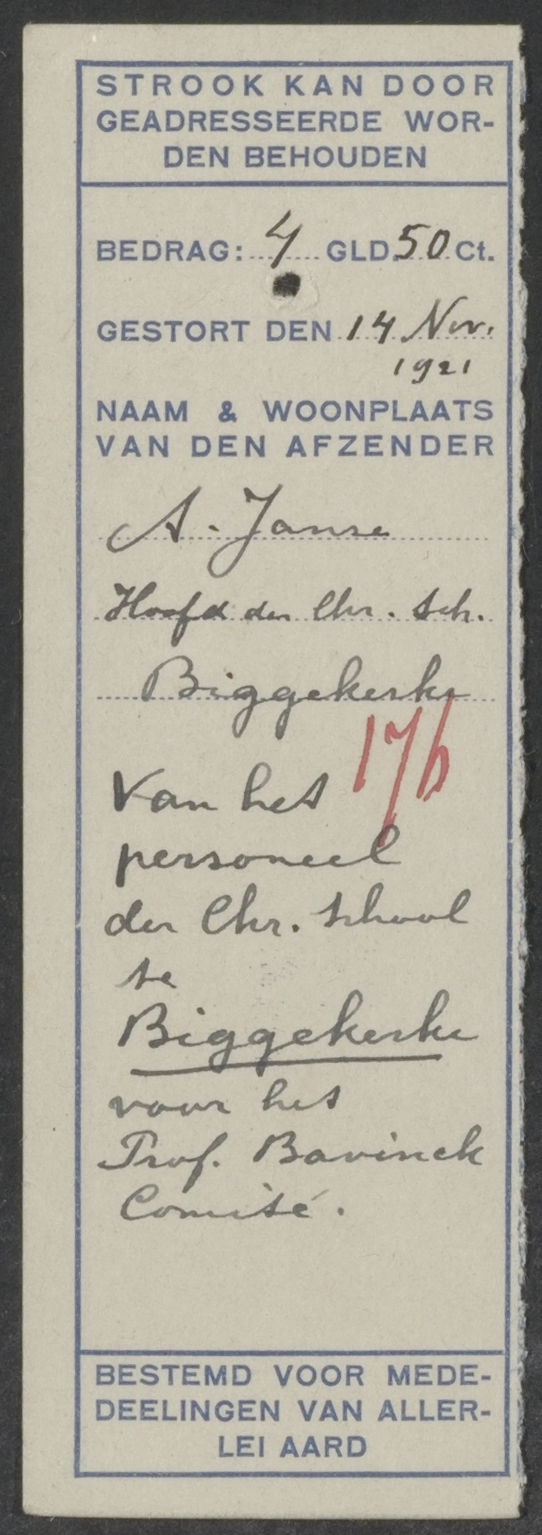 STROOK KAN DOOR
GEADRESSEERDE WOR-
DEN BEHOUDEN
BEDRAG: 4 GLD. 50 Ct.
GESTORT DEN 14 Nov.
1921
NAAM & WOONPLAATS
VAN DEN AFZENDER
A. Janse
Hoofd der Chr. Sch.
Biggekerke
176
Van het
personeel
der Chr. School
te
Biggekerke
voor het
Prof. Bavinck
Comité.
BESTEMD VOOR MEDE-
DEELINGEN VAN ALLER-
LEI AARD